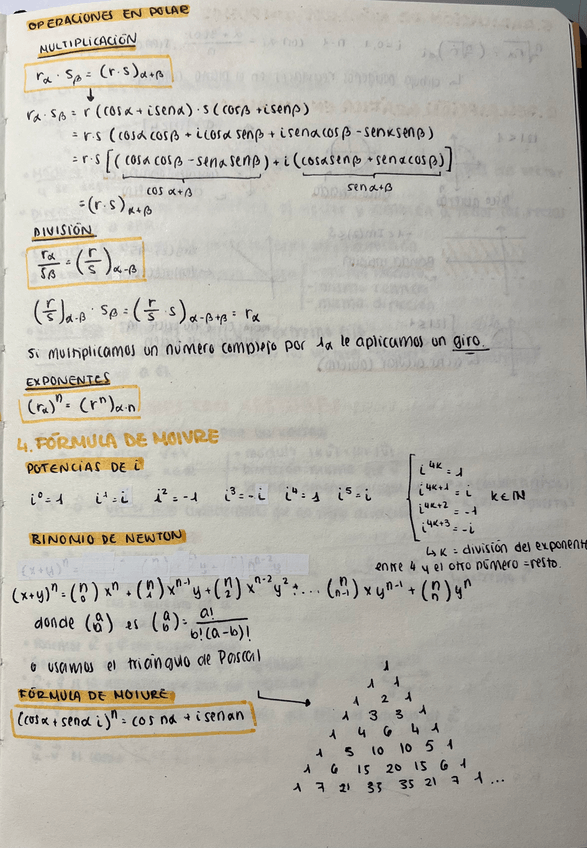 OPERACIONES EN POLAR
MULTIPLICACIÓN
r_α · s_β = (r·s)_{α+β}
↓
r_α · s_β = r (cosα + i senα) · s (cosβ + i senβ)
= r·s (cosα cosβ + i cosα senβ + i senα cosβ - senα senβ)
= r·s [(cosα cosβ - senα senβ) + i (cosα senβ + senα cosβ)]
cos α+β    sen α+β
= (r·s)_{α+β}
DIVISIÓN
r_α / s_β = (r/s)_{α-β}
(r/s)_{α-β} · s_β = (r/s · s)_{α-β+β} = r_α
Si multiplicamos un número complejo por 1_α le aplicamos un giro.
EXPONENTES
(r_α)^n = (r^n)_{α·n}
4. FÓRMULA DE MOIVRE
POTENCIAS DE i
i^0 = 1    i^1 = i    i^2 = -1    i^3 = -i    i^4 = 1    i^5 = i
i^{4K} = 1
i^{4K+1} = i
i^{4K+2} = -1
i^{4K+3} = -i
K∈ℕ
↳ K = división del exponente
entre 4 y el otro número = resto.
BINOMIO DE NEWTON
(x+y)^n = (n 0) x^n + (n 1) x^{n-1} y + (n 2) x^{n-2} y^2 + ... (n n-1) x y^{n-1} + (n n) y^n
donde (a b) es (a b) = a! / b!(a-b)!
o usamos el triángulo de Pascal
→
1
1 1
1 2 1
1 3 3 1
1 4 6 4 1
1 5 10 10 5 1
1 6 15 20 15 6 1
1 7 21 33 35 21 7 1 ...
FÓRMULA DE MOIVRE
(cosα + senα i)^n = cos nα + i senαn